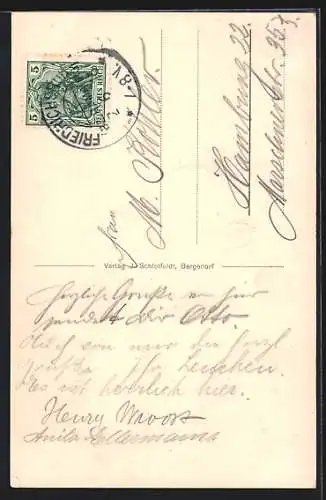 5 DEUTSCHES REICH 5
FRIEDRICHSRUH
7-8V.
Frau
M. Köster
Hamburg 22.
Verlag J. Schloifeldt, Bergedorf
Herzliche Grüße von hier
sendet Dir Otto.
Auch von mir die herzl
Grüße Ihr Lenchen.
Es ist herrlich hier.
Henry Woost
Anita Ellermann